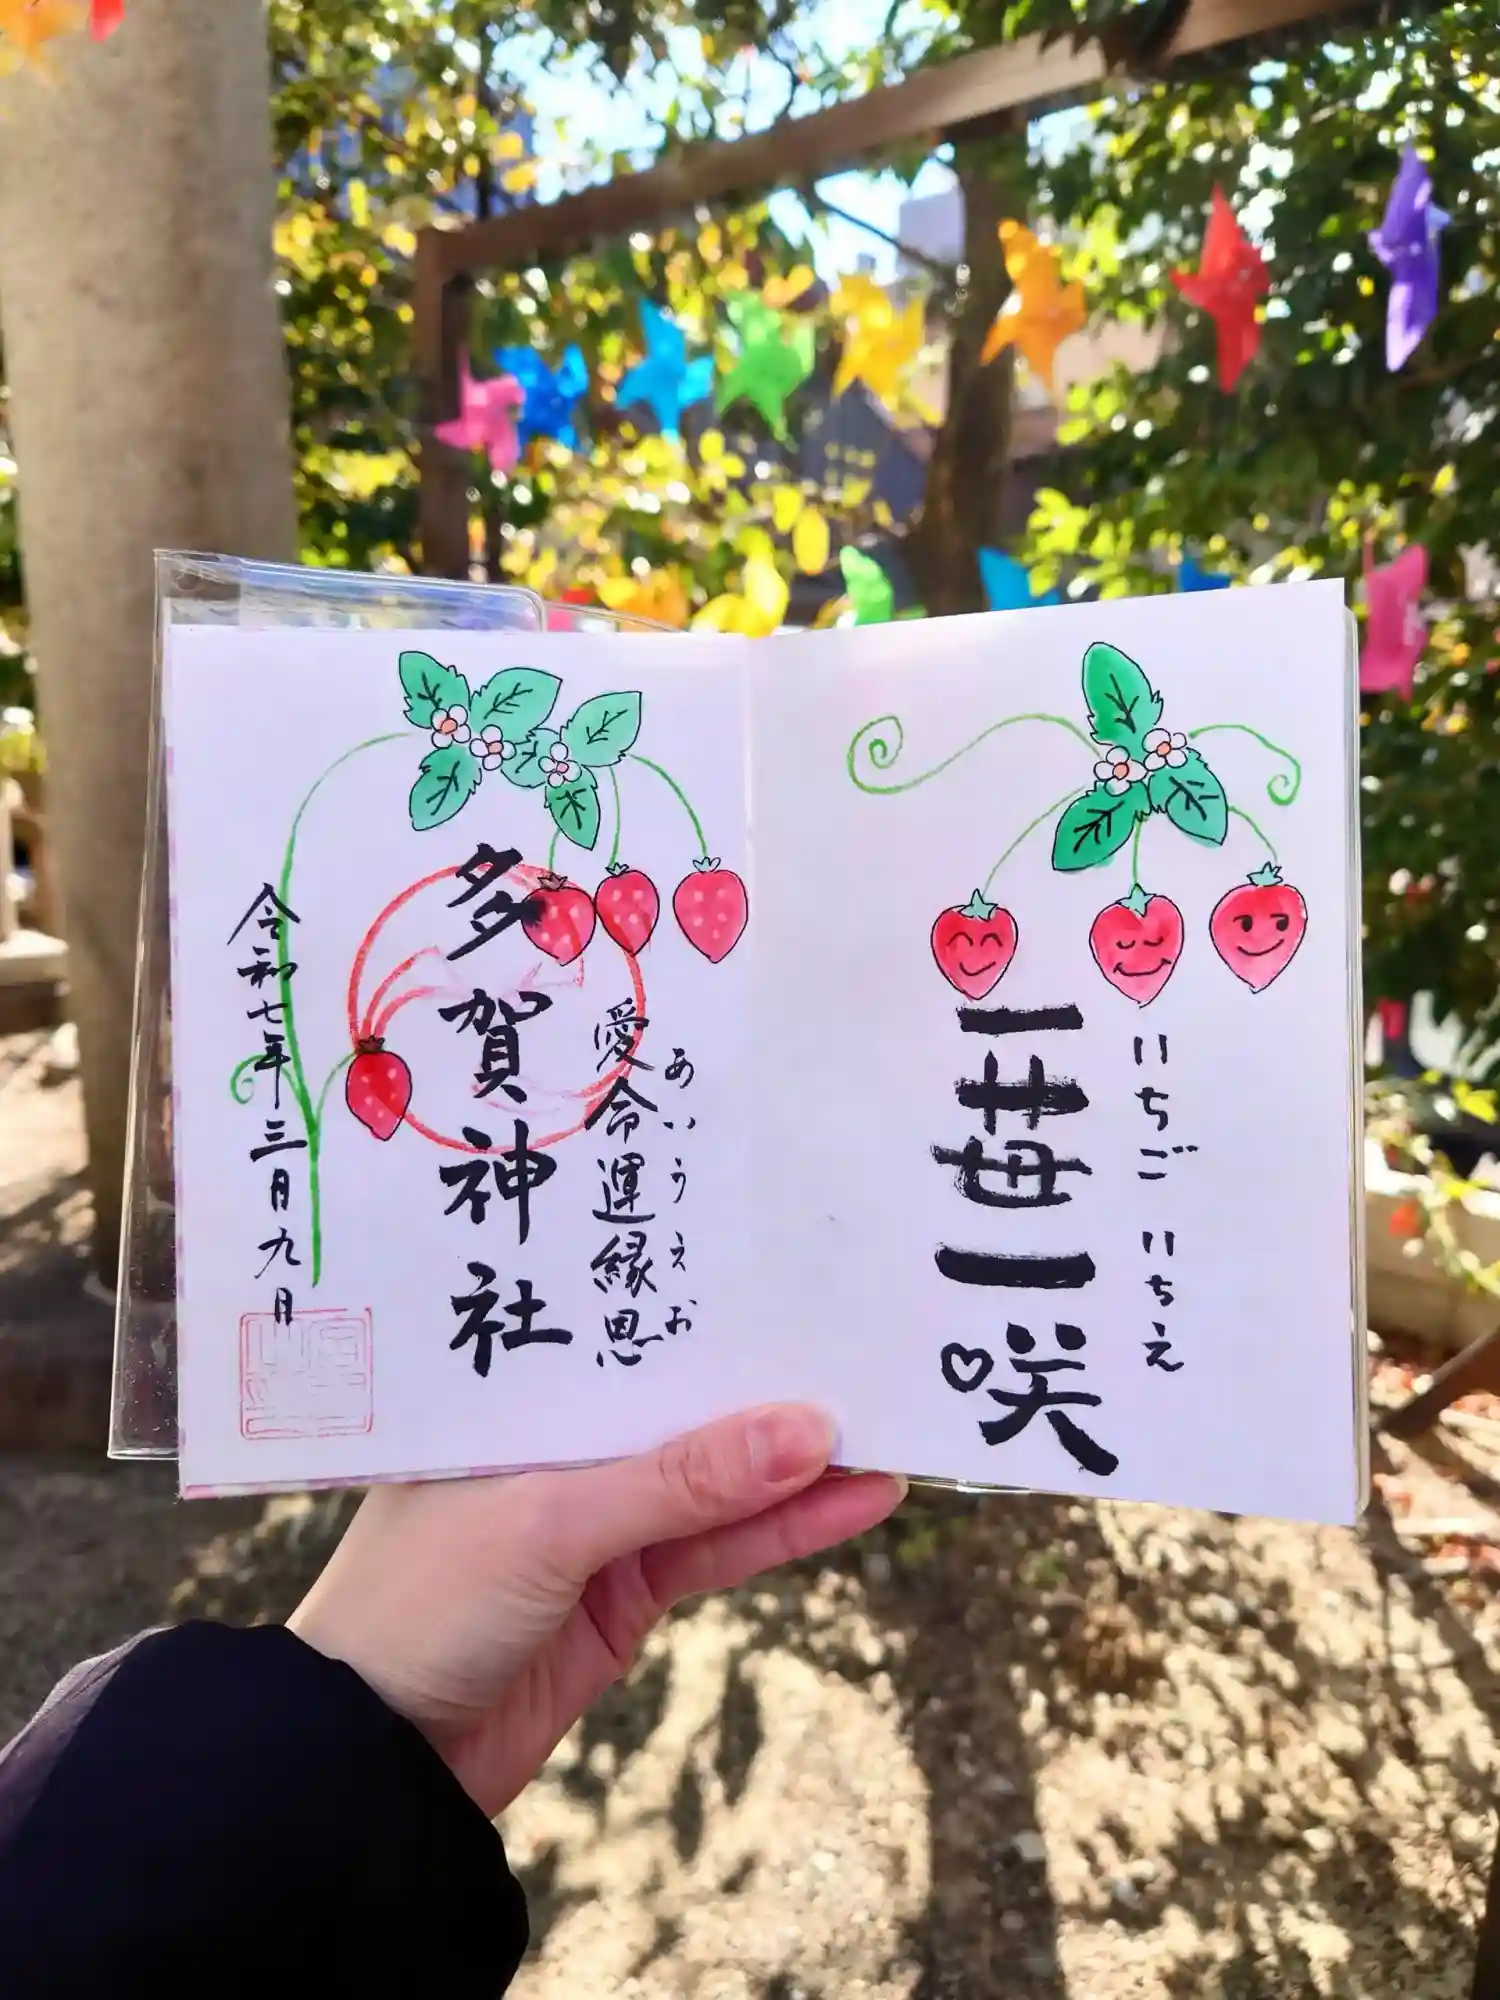 一苺一咲
いちご いちえ
多賀神社
愛命運縁恩
あいうえお
令和七年三月九日